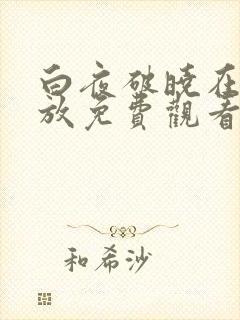 白夜破曉在
放免費觀看
和希沙